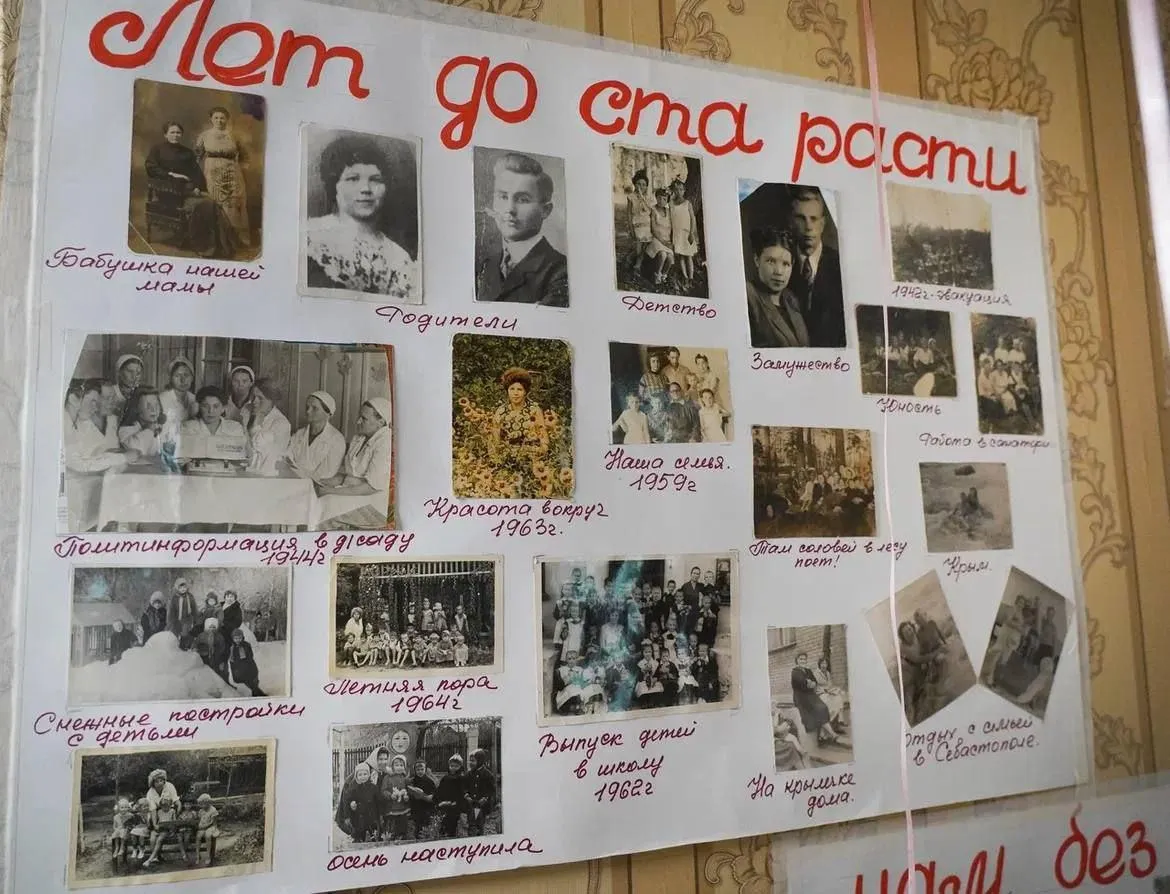 Лет до ста расти
Бабушка нашей
мамы
Родители
Детство
Замужество
1942г-эвакуация
Юность
Работа в санатории
Политинформация в д/саду
1944г
Красота вокруг
1963г.
Наша семья.
1959г
Там соловей в лесу
поет!
Крым.
Снежные постройки
с детьми
Летняя пора
1964г
Выпуск детей
в школу
1962г
На крылечке
дома.
Отдых с семьей
в Севастополе.
осень наступила
нам без